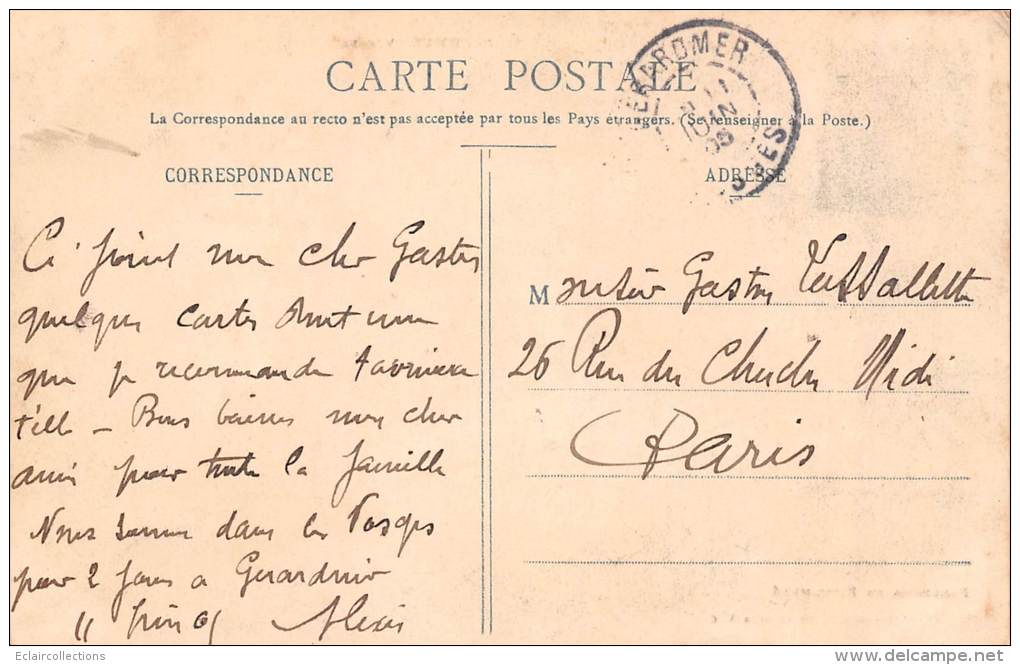 CARTE POSTALE
La Correspondance au recto n'est pas acceptée par tous les Pays étrangers. (Se renseigner à la Poste.)
CORRESPONDANCE
ADRESSE
GERARDMER
JUIN
VOSGES
Ci joint mon cher Gaston
quelques cartes dont une
que je recommande
Bons baisers mon cher
ami pour toute la famille
Nous sommes dans les Vosges
pour 2 jours a Gerardmer
11 juin 05 Alexis
Monsieur Gaston
26 Rue du Cherche Midi
Paris
Eclaircollections
http://www.delcampe.net